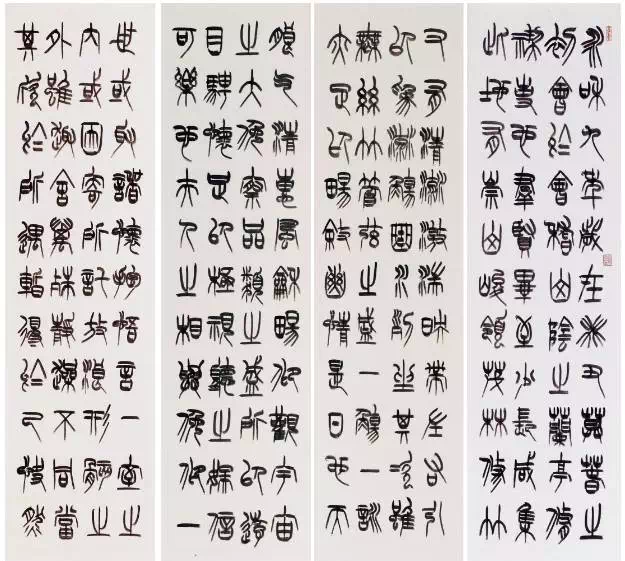 永和九年歲在癸丑暮春之
初會於會稽山陰之蘭亭脩
禊事也群賢畢至少長咸集
此地有崇山峻領茂林脩竹
又有清流激湍映帶左右引
以為流觴曲水列坐其次雖
無絲竹管弦之盛一觴一詠
亦足以暢敘幽情是日也天
朗氣清惠風和暢仰觀宇宙
之大俯察品類之盛所以遊
目騁懷足以極視聽之娛信
可樂也夫人之相與俯仰一
世或取諸懷抱悟言一室之
內或因寄所託放浪形骸之
外雖趣舍萬殊靜躁不同當
其欣於所遇暫得於己快然